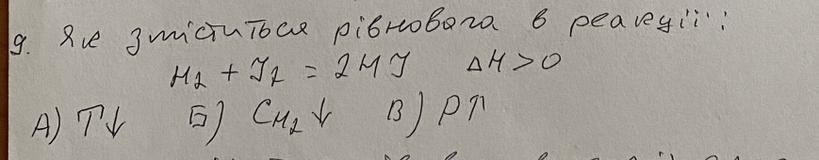 9. Як зміститься рівновага в реакції:
H₂ + J₂ = 2HJ ΔH > 0
А) T↓ Б) C_H₂↓ В) P↑